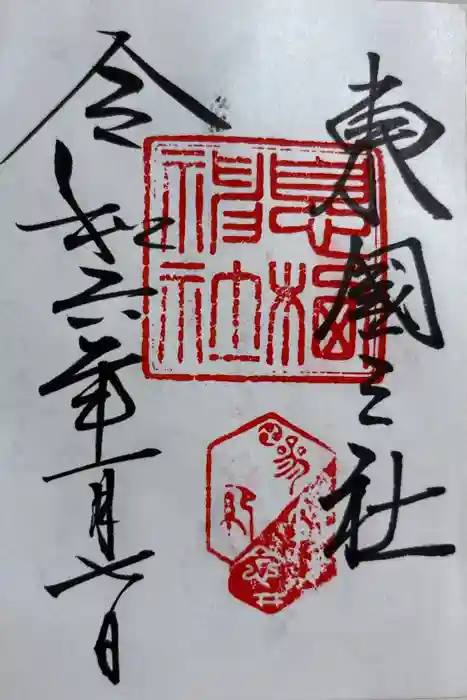 東國三社
息栖
神社
令和六年一月七日